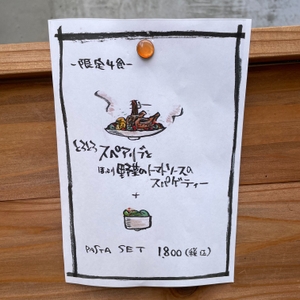 -限定4食-
とろとろ スペアリブと
ほっくり 野菜のトマトソースの
スパゲティー
+
PASTA SET 1.800(税込)